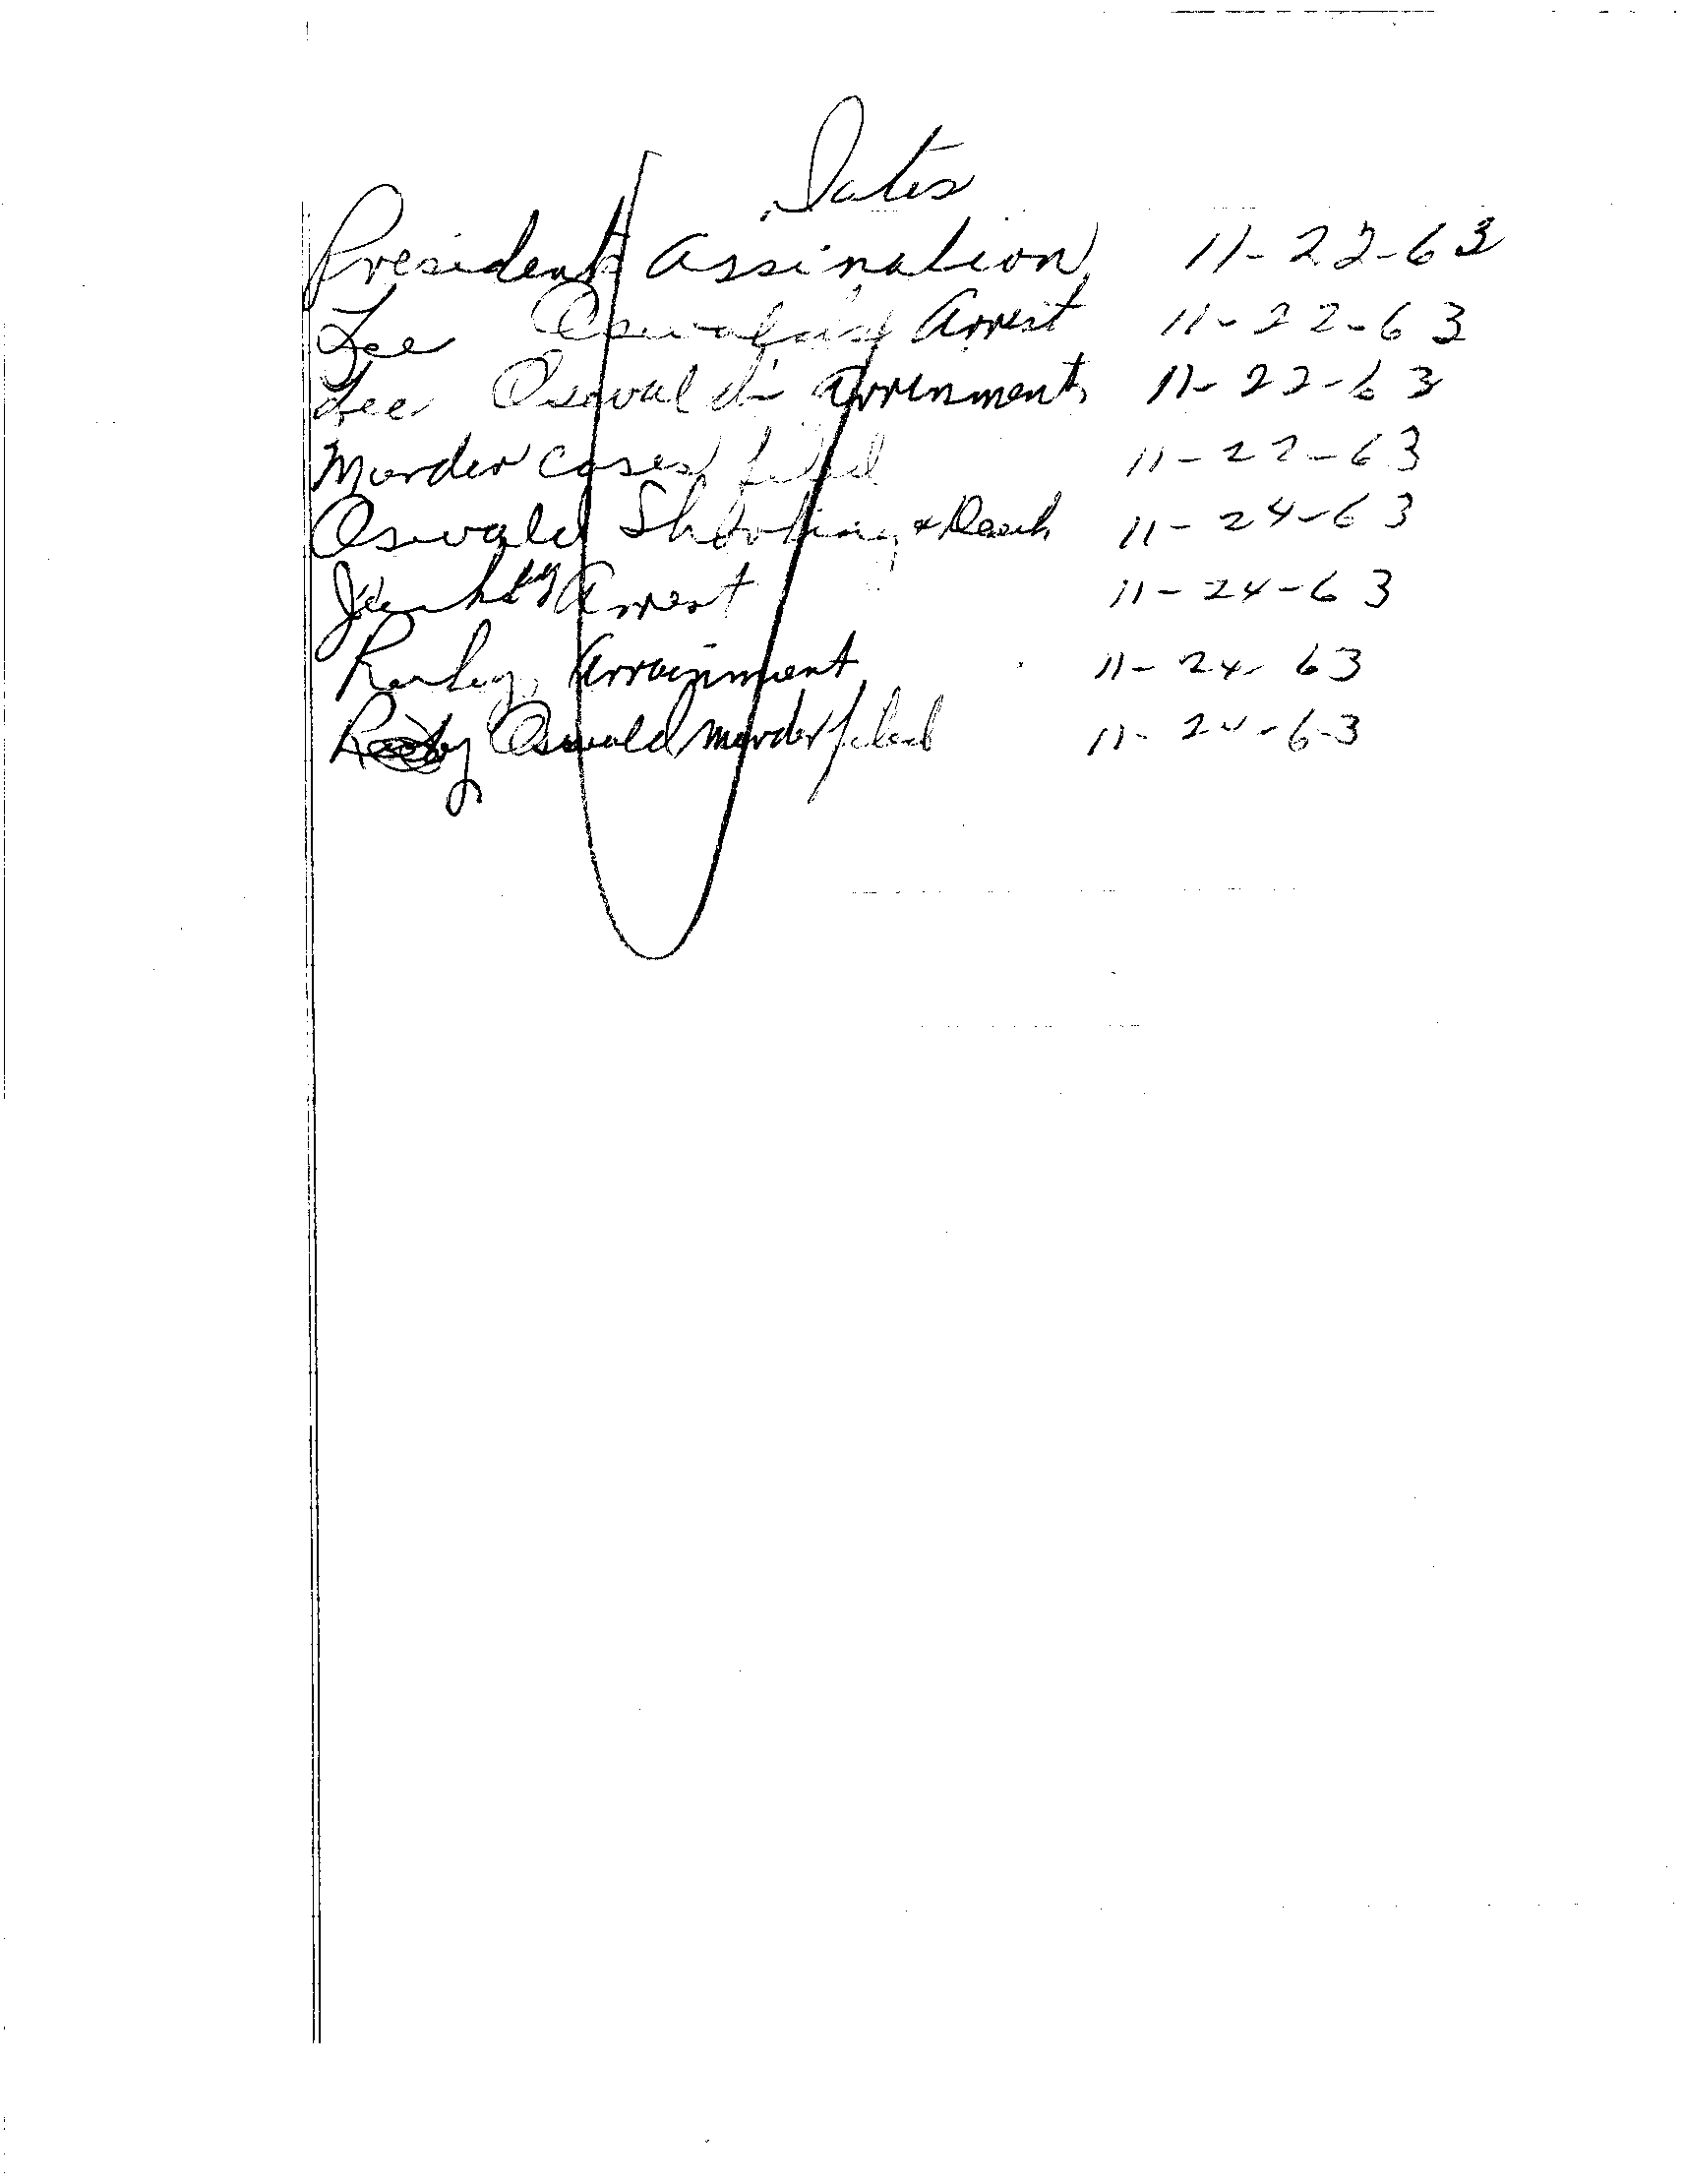 Dates
President Assination 11-22-63
Lee Oswald's Arrest 11-22-63
Lee Oswald's Arrinment 11-22-63
Murder cases filed 11-22-63
Oswald Shooting & Death 11-24-63
Arrest 11-24-63
Ruby Arrainment 11-24-63
Oswald murder filed 11-24-63